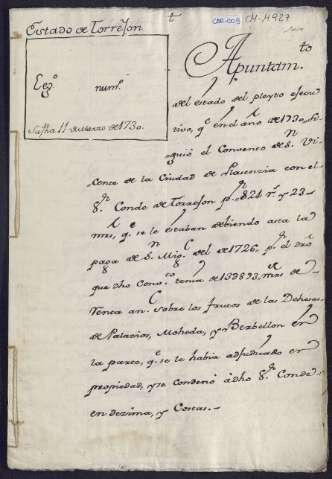 Estado de Torrejon
t
CM-4927
Leg.º num.º
Zafra 11 de Marzo de 1730
Apuntam.to
del estado del pleyto execu-
tivo, q.e en el año de 1730 si-
guió el Convento de S.n Vi-
cente de la Ciudad de Plasencia con el
S.r Conde de Torrejon p.r 824 r.s y 23
mrs, q.e se le estaban debiendo asta la
paga de S.n Mig.l del de 1726, p.r el dro
que dho Conv.to tenia de 133893 mrs de
renta an.l sobre los frutos de las Dehesas
de Palacios, Moheda, y Berbellon en
la parte, q.e se le habia adjudicado en
propiedad, y se condenó á dho S.r Conde
en dezima, y Costas.